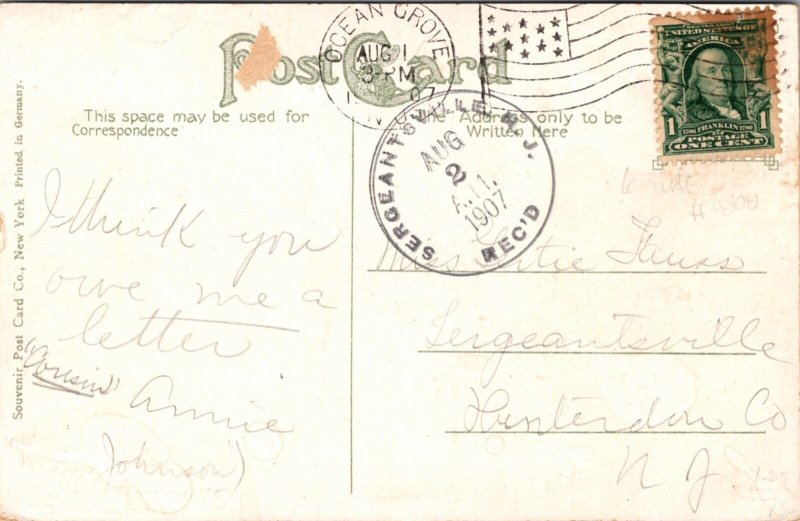 Post Card
OCEAN GROVE
AUG 1
3-PM
07
N
This space may be used for
Correspondence
The Address only to be
Written Here
SERGEANTSVILLE N. J.
AUG
2
1907
REC'D
UNITED STATES OF
AMERICA
1706 FRANKLIN 1790
POSTAGE
1 ONE CENT 1
Souvenir Post Card Co., New York Printed in Germany.
I think you
owe me a
letter
"Cousin"
Annie
Johnson)
Miss
Sergeantsville
Hunterdon Co
N. J.